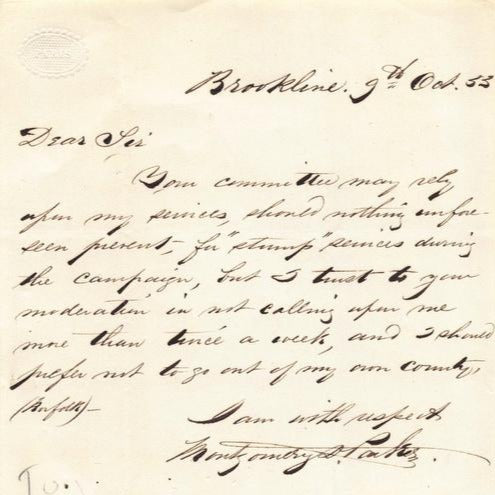 Brookline. 9th Oct. 53
Dear Sir
Your committee may rely
upon my services, should nothing unfore-
seen prevent, for "stump" services during
the campaign, but I trust to your
moderation in not calling upon me
more than twice a week, and I should
prefer not to go out of my own county,
(Norfolk)—
I am with respect
Montgomery D. Parker.